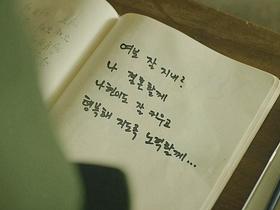 여보 잘 지내?
나 결혼할게
나현이도 잘 키우고
행복해 지도록 노력할게...